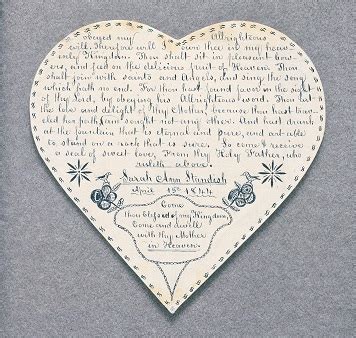 obeyed my Allrighteous
will. Therefore will I own thee in my heav-
enly Kingdom. Thou shalt sit in pleasant bow-
ers, and feed on the delicious fruit of Heaven. Thou
shalt join with saints and angels, and sing the song
which hath no end. For thou hast found favor in the sight
of thy Lord, by obeying his Allrighteous word. Thou art
the love and delight of thy Mother, because thou hast trav-
eled her path, and sought not any other. And hast drank
at the fountain that is eternal and pure, and art able
to stand on a rock that is sure. So come & receive
a seal of sweet love. From thy Holy Father, who
dwelleth above.
Sarah Ann Standish
April 1844
Come
thou blessed of my Kingdom,
Come and dwell
with thy Mother
in Heaven.